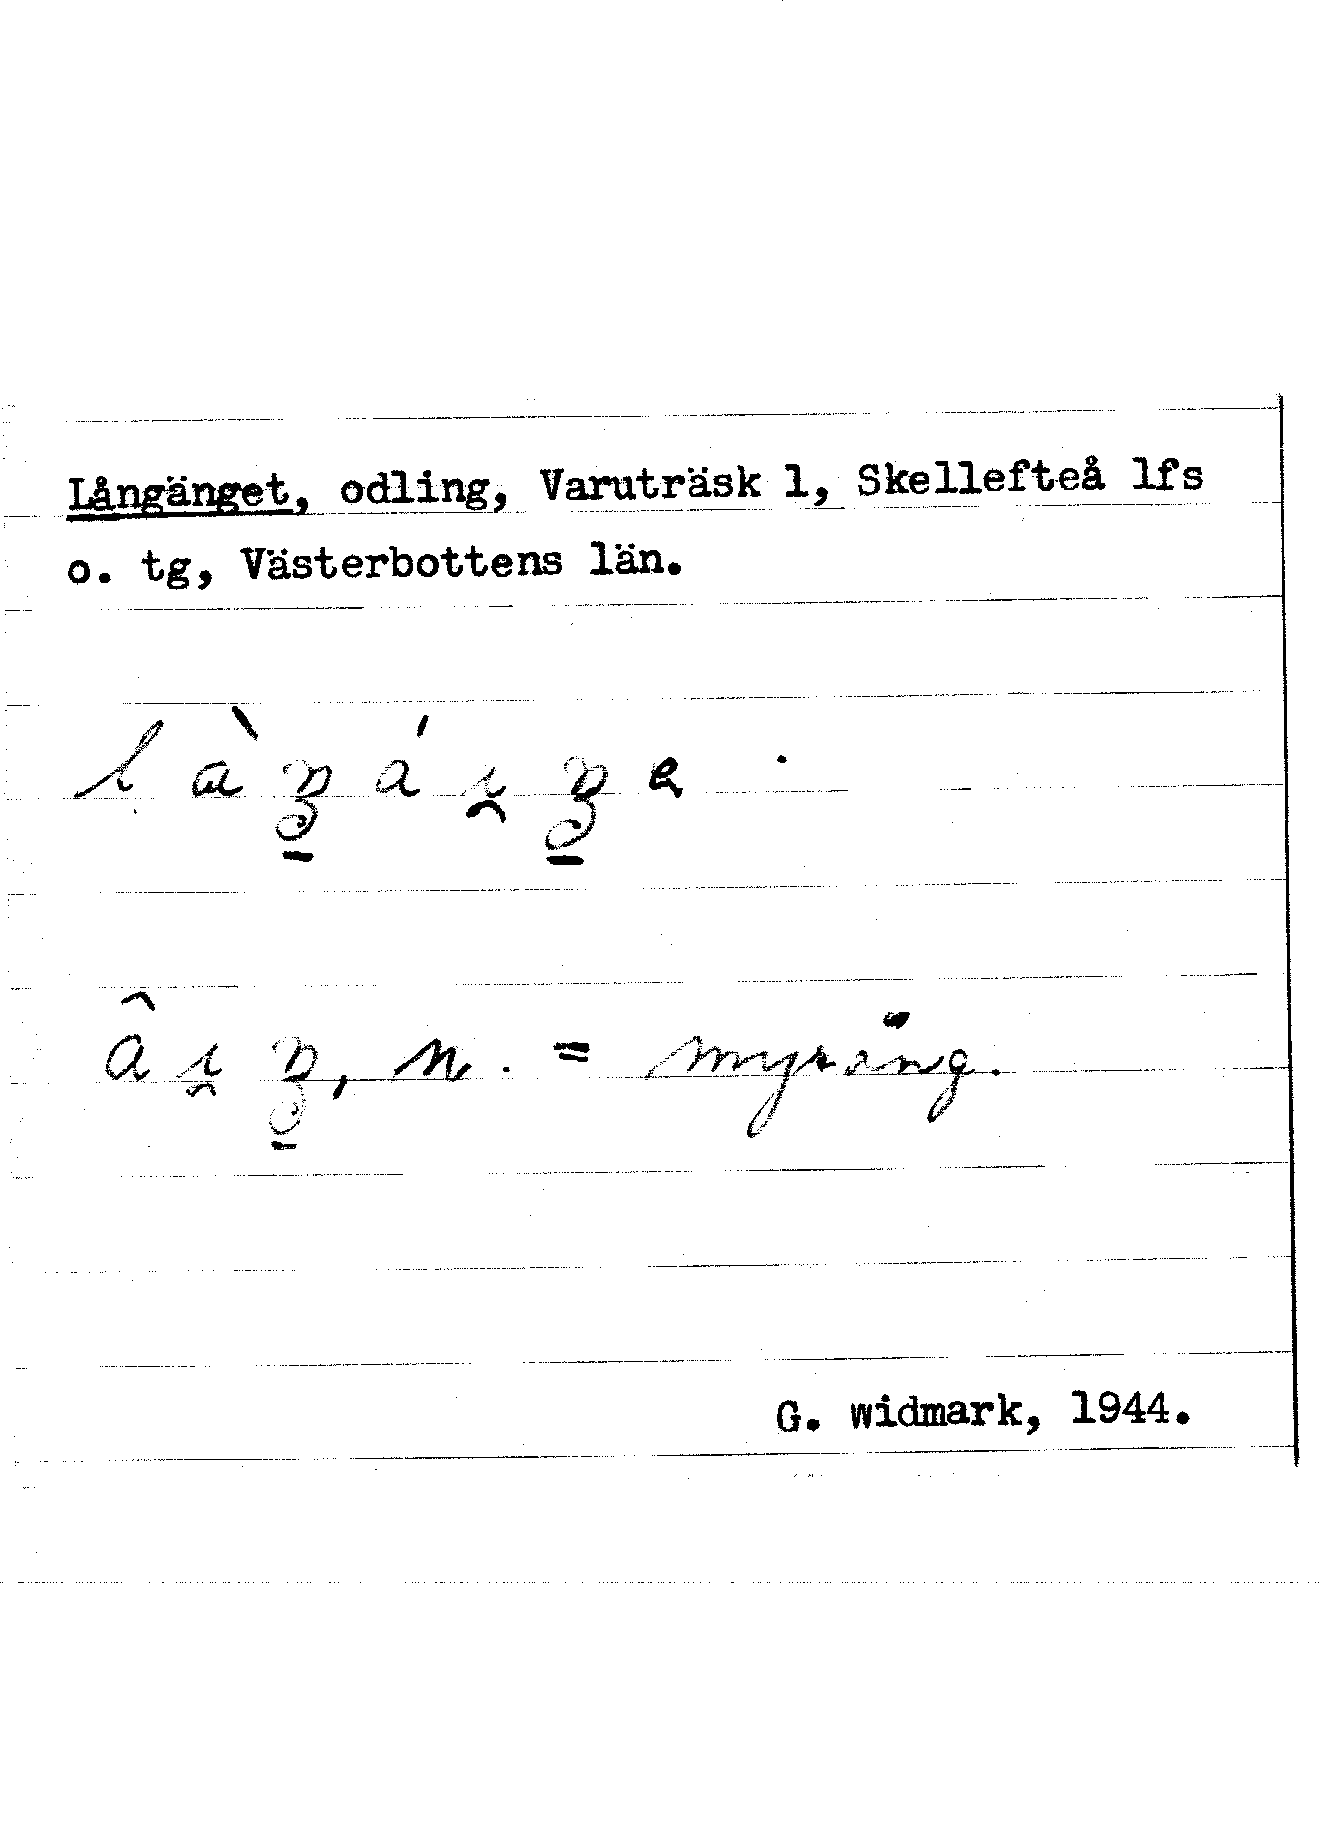 Långänget, odling, Varuträsk 1, Skellefteå lfs
o. tg, Västerbottens län.
n. = myräng.
G. widmark, 1944.